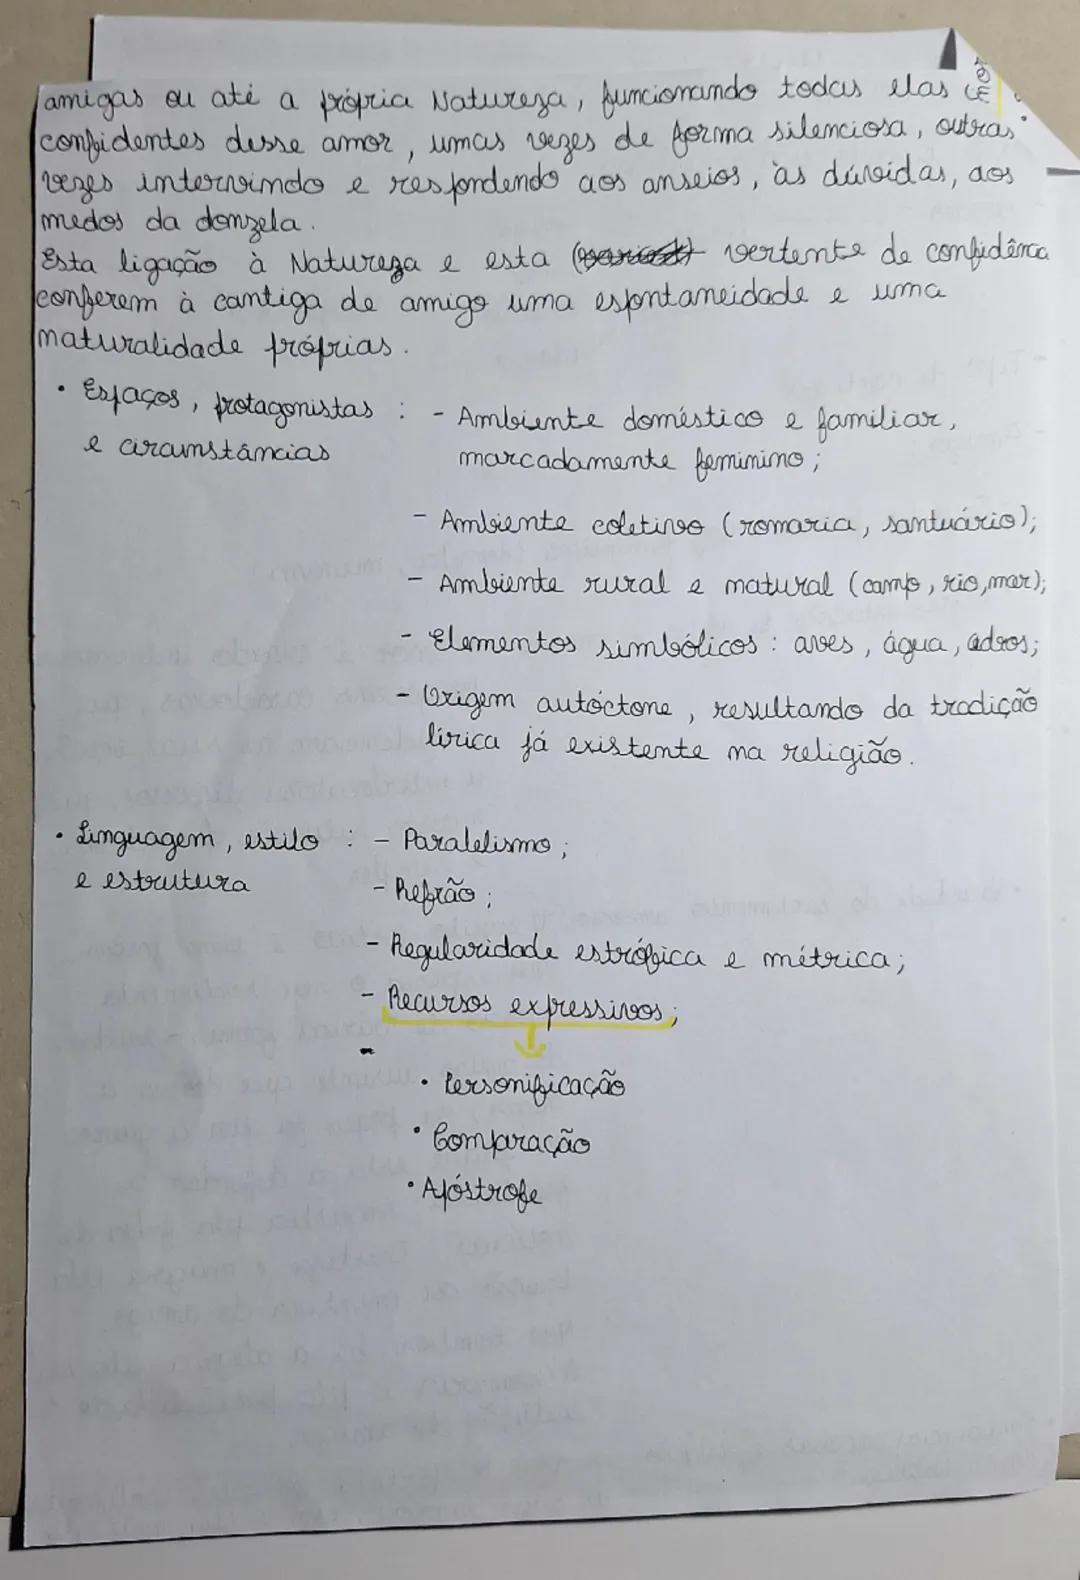 amigas ou até a própria Natureza, funcionando todas elas
confidentes desse amor, umas vezes de forma silenciosa, outras
vezes intervindo e respondendo aos anseios, às dúvidas, aos
medos da donzela.
Esta ligação à Natureza e esta vertente de confidência
conferem à cantiga de amigo uma espontaneidade e uma
naturalidade próprias.
• Espaços, protagonistas : - Ambiente doméstico e familiar,
e circunstâncias marcadamente feminino;
- Ambiente coletivo (romaria, santuário);
- Ambiente rural e natural (campo, rio, mar);
- Elementos simbólicos: aves, água, adros;
- Origem autóctone, resultando da tradição
lírica já existente na religião.
• Linguagem, estilo : - Paralelismo;
e estrutura - Refrão;
- Regularidade estrófica e métrica;
- Recursos expressivos;
-
• Personificação
• Comparação
• Apóstrofe